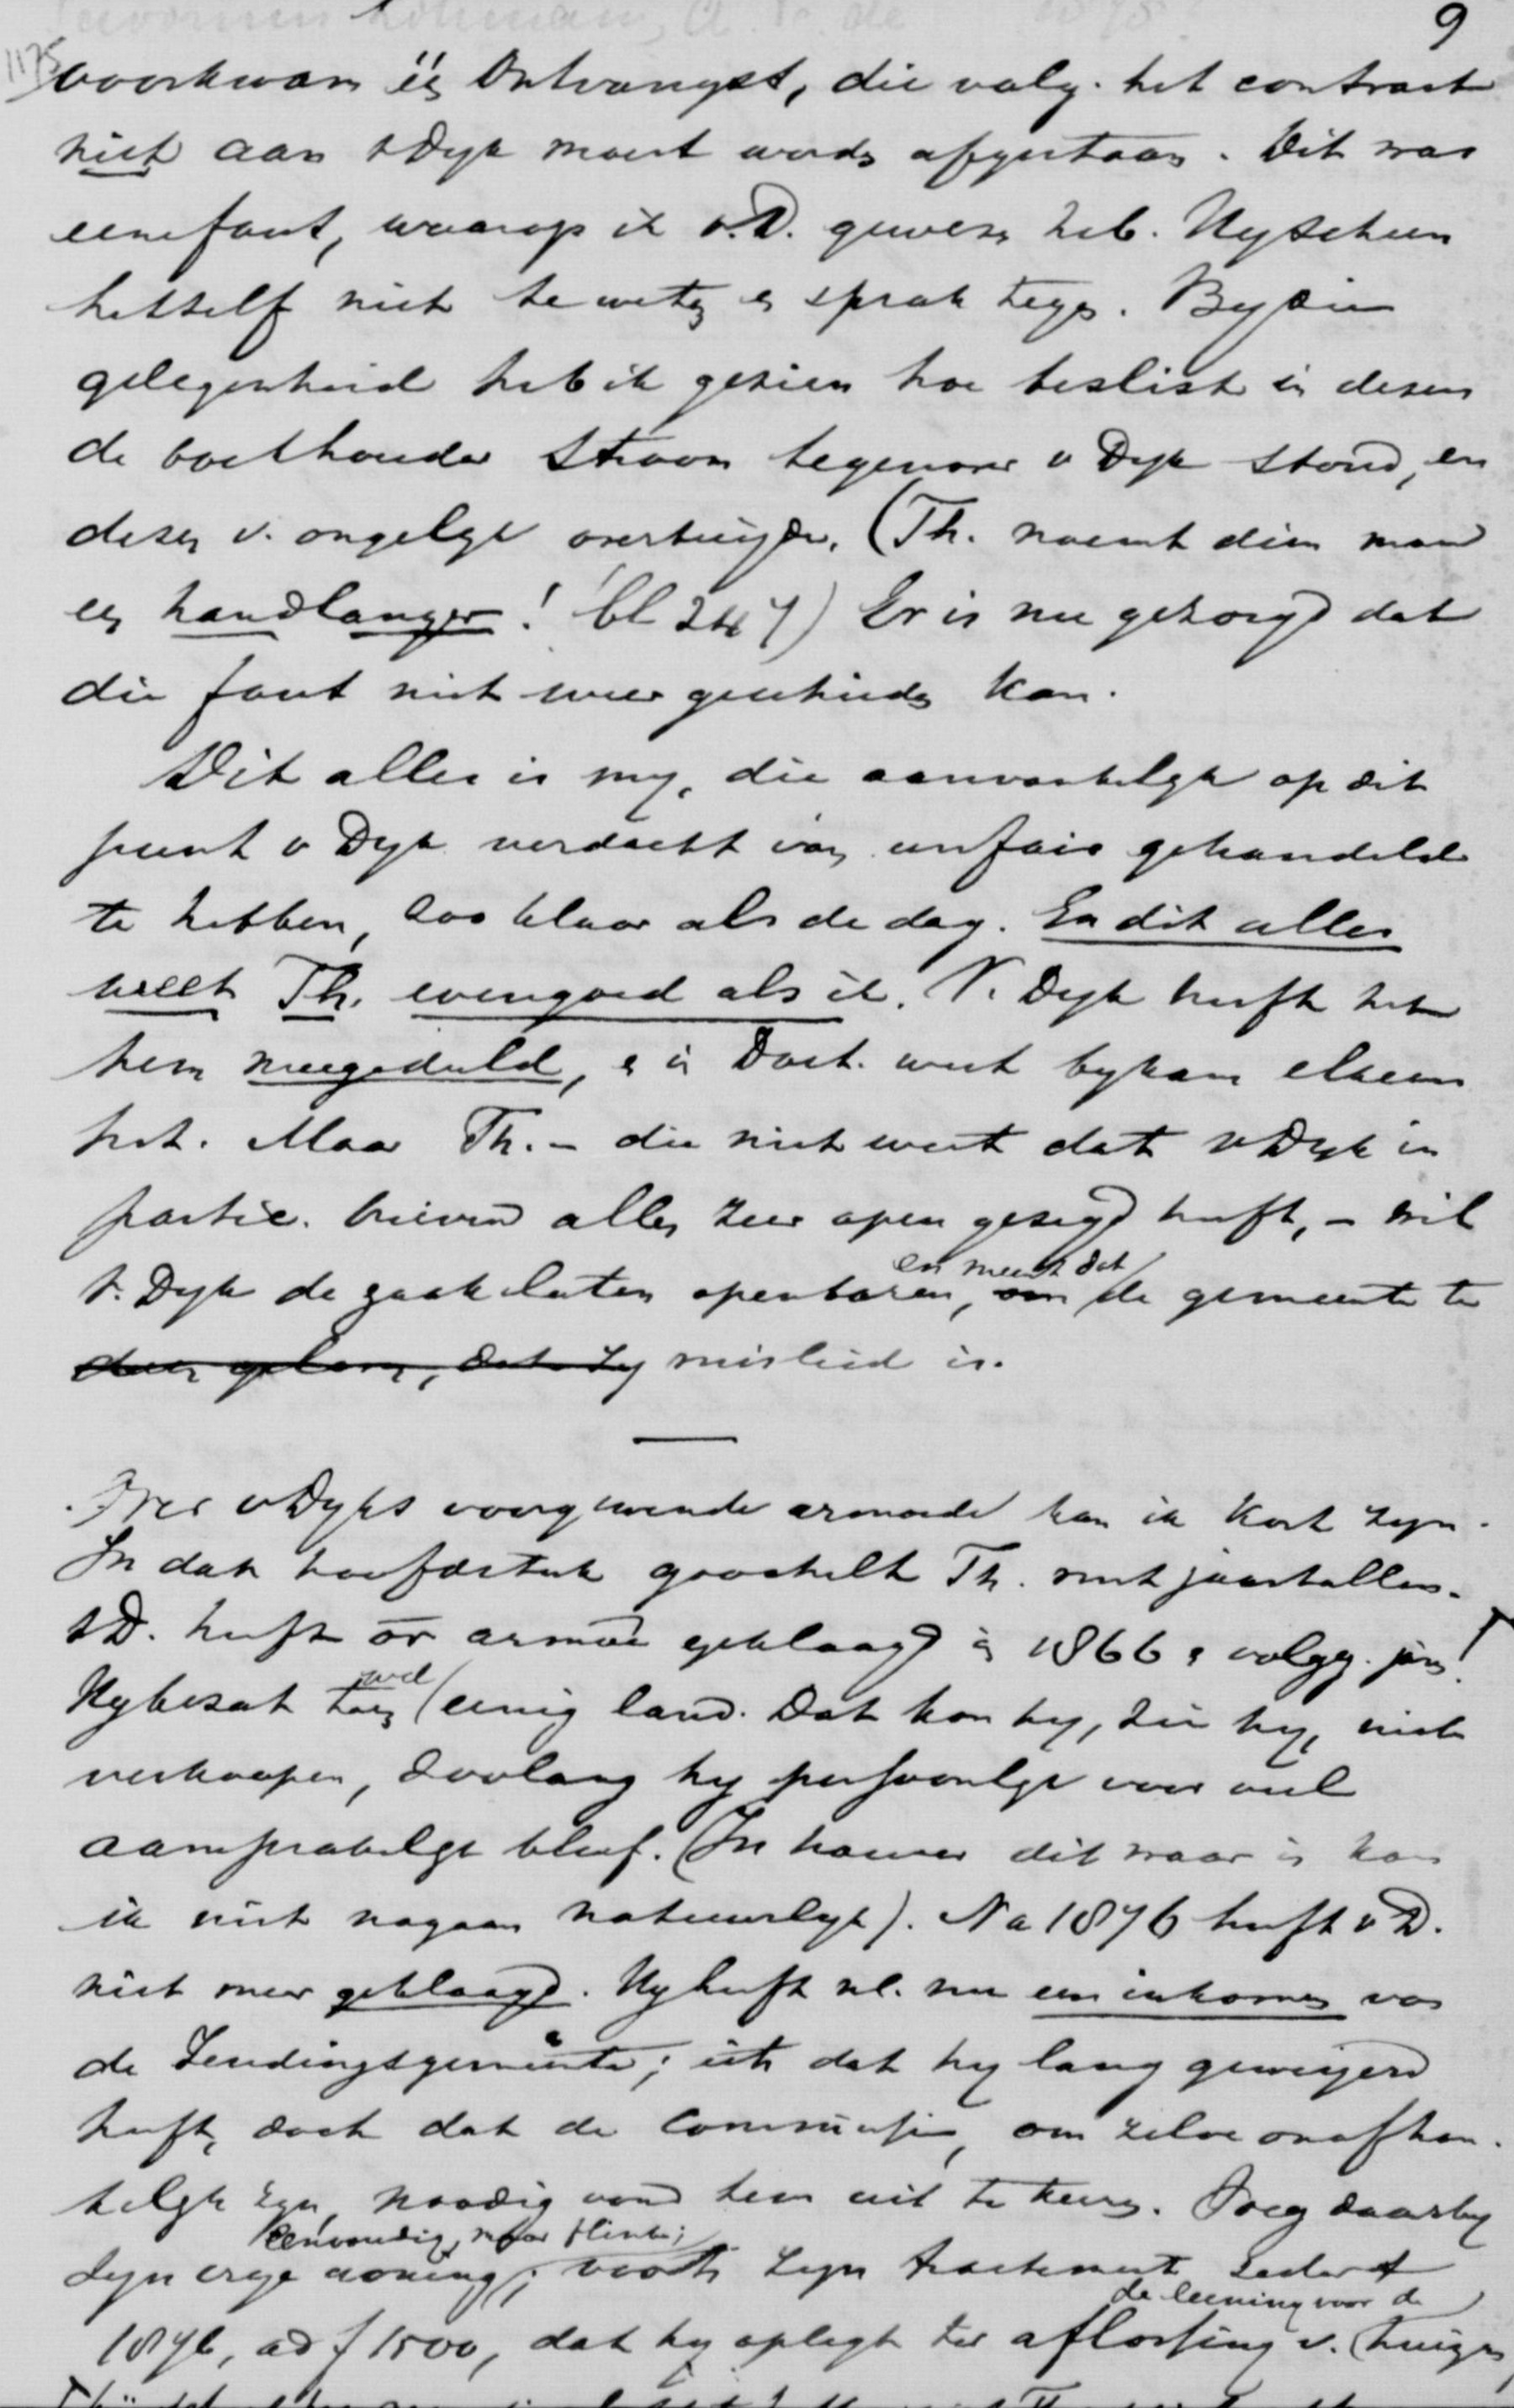 9
1175
voorkwam één Ontvangst, die volg. het contract
niet aan v Dyk moest worden afgestaan. Dit was
eene fout, waarop ik v.D. gewezen heb. Hy scheen
hetself niet te weten en sprak tegen. By die
gelegenheid heb ik gezien hoe beslist in dezen
de boekhouder Stroom tegenover v Dyk stond, en
dezen v. ongelyk overtuigde. (Th. noemt dien man
een handlanger! bl 247) Er is nu gezorgd dat
die fout niet weer geschieden kan.
Dit alles is my, die aanvankelyk op dit
punt v Dyk verdacht van unfair gehandeld
te hebben, zoo klaar als de dag. En dit alles
weet Th. evengoed als ik. V. Dyk heeft het
hem meegedeeld, en in Doet. weet bykans elkeen
het. Maar Th. – die niet weet dat v Dyk in
partic. brieven alles zeer open gezegd heeft, – wil
v. Dyk de zaak laten openbaren, om de gemeente te
en meent dat
doen gelooven, dat zy misleid is.
Over v Dyks voorgewende armoede kan ik kort zyn.
In dat hoofdstuk goochelt Th. met jaartallen.
v D. heeft over armoe geklaagd in 1866 en volgg. jaren!
Hy bezat toen eenig land. Dat kon hy, zei hy, niet
wel
verkoopen, zoolang hy persoonlyk voor veel
aansprakelyk bleef. (In hoever dit waar is kan
ik niet nagaan natuurlyk). Na 1876 heeft v D.
niet meer geklaagd. Hy heeft nl. nu een inkomen van
de Zendingsgemeente; iets dat hy lang geweigerd
heeft, doch dat de Commissie, om zelve onafhan-
kelyk te zyn, noodig vond hem uit te keeren. Voeg daarby
eenvoudig, maar flink;
zyn eigen woning; voorts zyn tractement sedert
de leening voor de
1876, ad f 1500, dat hy oplegt ter aflossing v. huizen